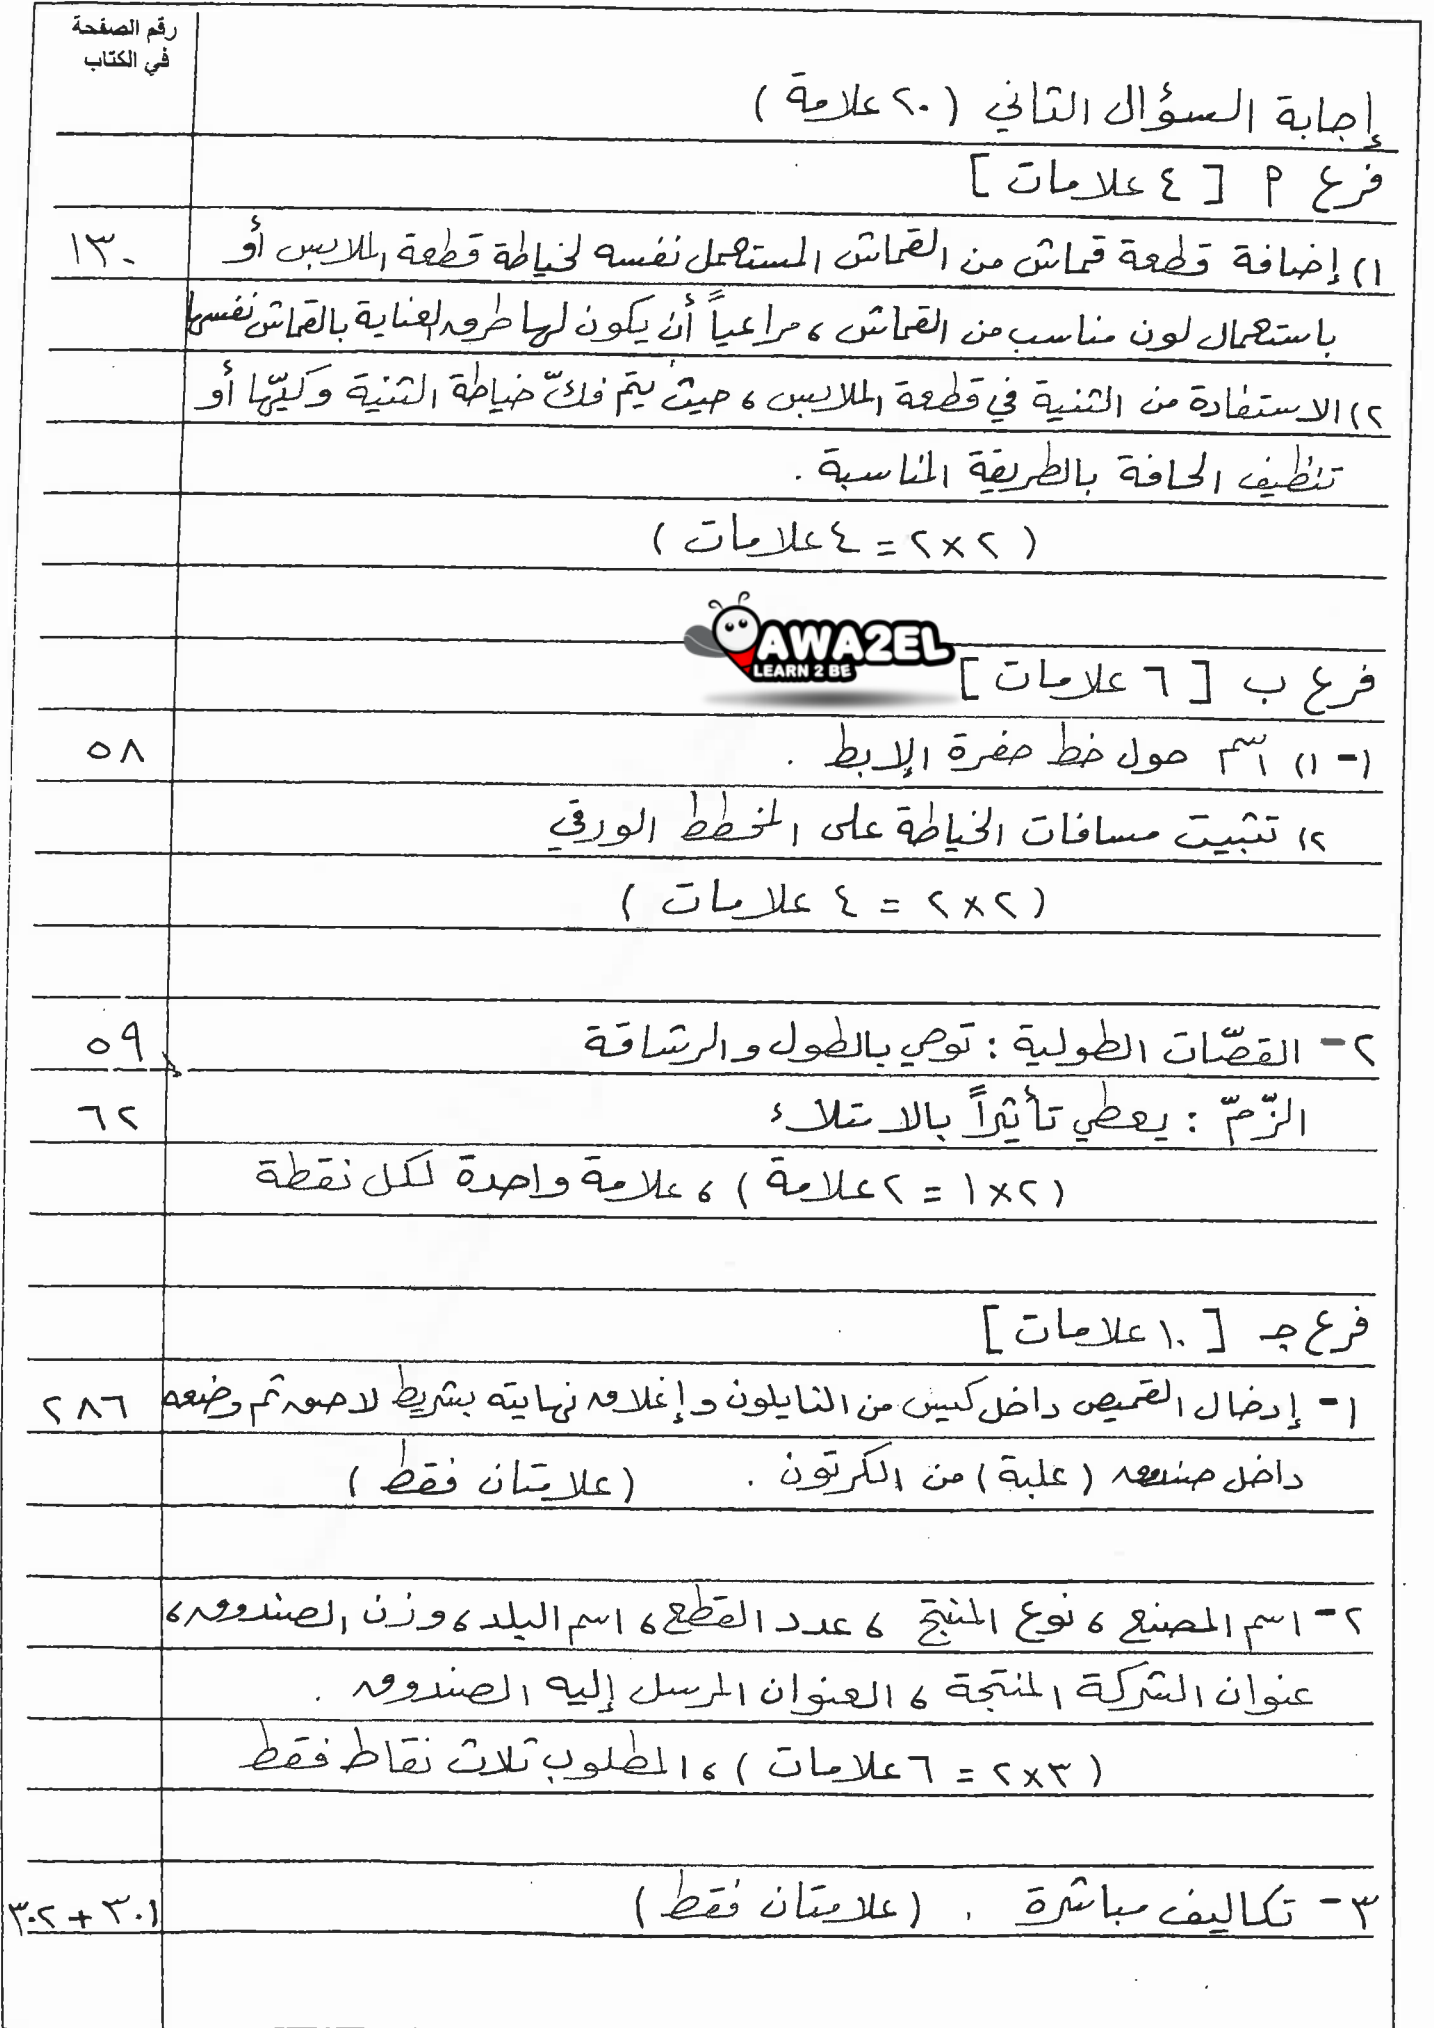 رقم الصفحة
في الكتاب
إجابة السؤال الثاني (٢٠ علامة)
فرع أ [٤ علامات]
١) إضافة قطعة قماش من القماش المستعمل نفسه لخياطة قطعة الملابس أو ١٣٠
باستعمال لون مناسب من القماش، مراعياً أن يكون لها طرق العناية بالقماش نفسها
٢) الاستفادة من الثنية في قطعة الملابس، حيث يتم فكّ خياطة الثنية وكيّها أو
تنظيف الحافة بالطريقة المناسبة.
(٢×٢ = ٤ علامات)
AWA2EL
LEARN 2 BE
فرع ب [٦ علامات]
١- ١) ١سم حول خط حفرة الإبط. ٥٨
٢) تثبيت مسافات الخياطة على المخطط الورقي
(٢×٢ = ٤ علامات)
٢- القصّات الطولية: توحي بالطول والرشاقة ٥٩
الزّمّ: يعطي تأثيراً بالامتلاء ٦٢
(٢×١ = ٢ علامة)، علامة واحدة لكل نقطة
فرع جـ [١٠ علامات]
١- إدخال القميص داخل كيس من النايلون وإغلاق نهايته بشريط لاصق ثم وضعه ٢٨٦
داخل صندوق (علبة) من الكرتون. (علامتان فقط)
٢- اسم المصنع، نوع المنتج، عدد القطع، اسم البلد، وزن الصندوق،
عنوان الشركة المنتجة، العنوان المرسل إليه الصندوق.
(٣×٢ = ٦ علامات)، المطلوب ثلاث نقاط فقط
٣- تكاليف مباشرة. (علامتان فقط) ٣٠١+٣٠٢